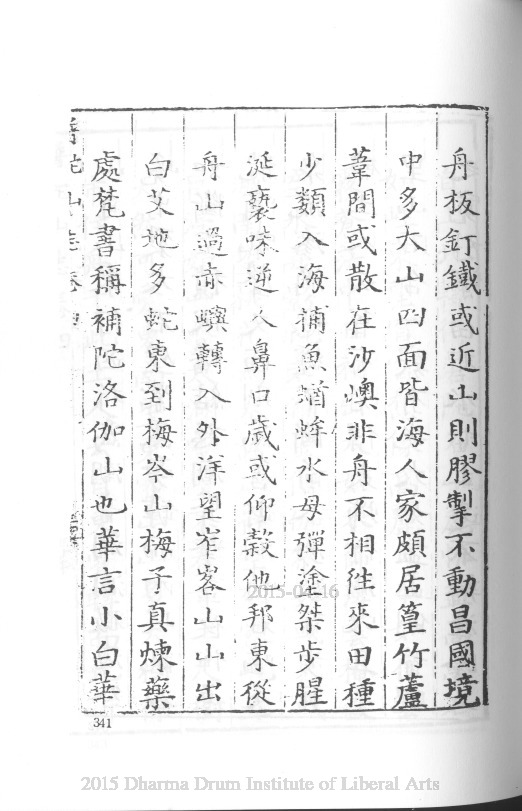 舟板釘鐵或近山則膠掣不動昌國境
中多大山四面皆海人家頗居篁竹蘆
葦間或散在沙嶼非舟不相徃來田種
少類入海捕魚蝤蛑水母彈塗桀步腥
涎褻味逆人鼻口歲或仰穀他邦東從
舟山過赤嶼轉入外洋望岝客山山出
白艾地多蛇東到梅岑山梅子真煉藥
處梵書稱補陀洛伽山也華言小白華
341
2015-04-16
2015 Dharma Drum Institute of Liberal Arts